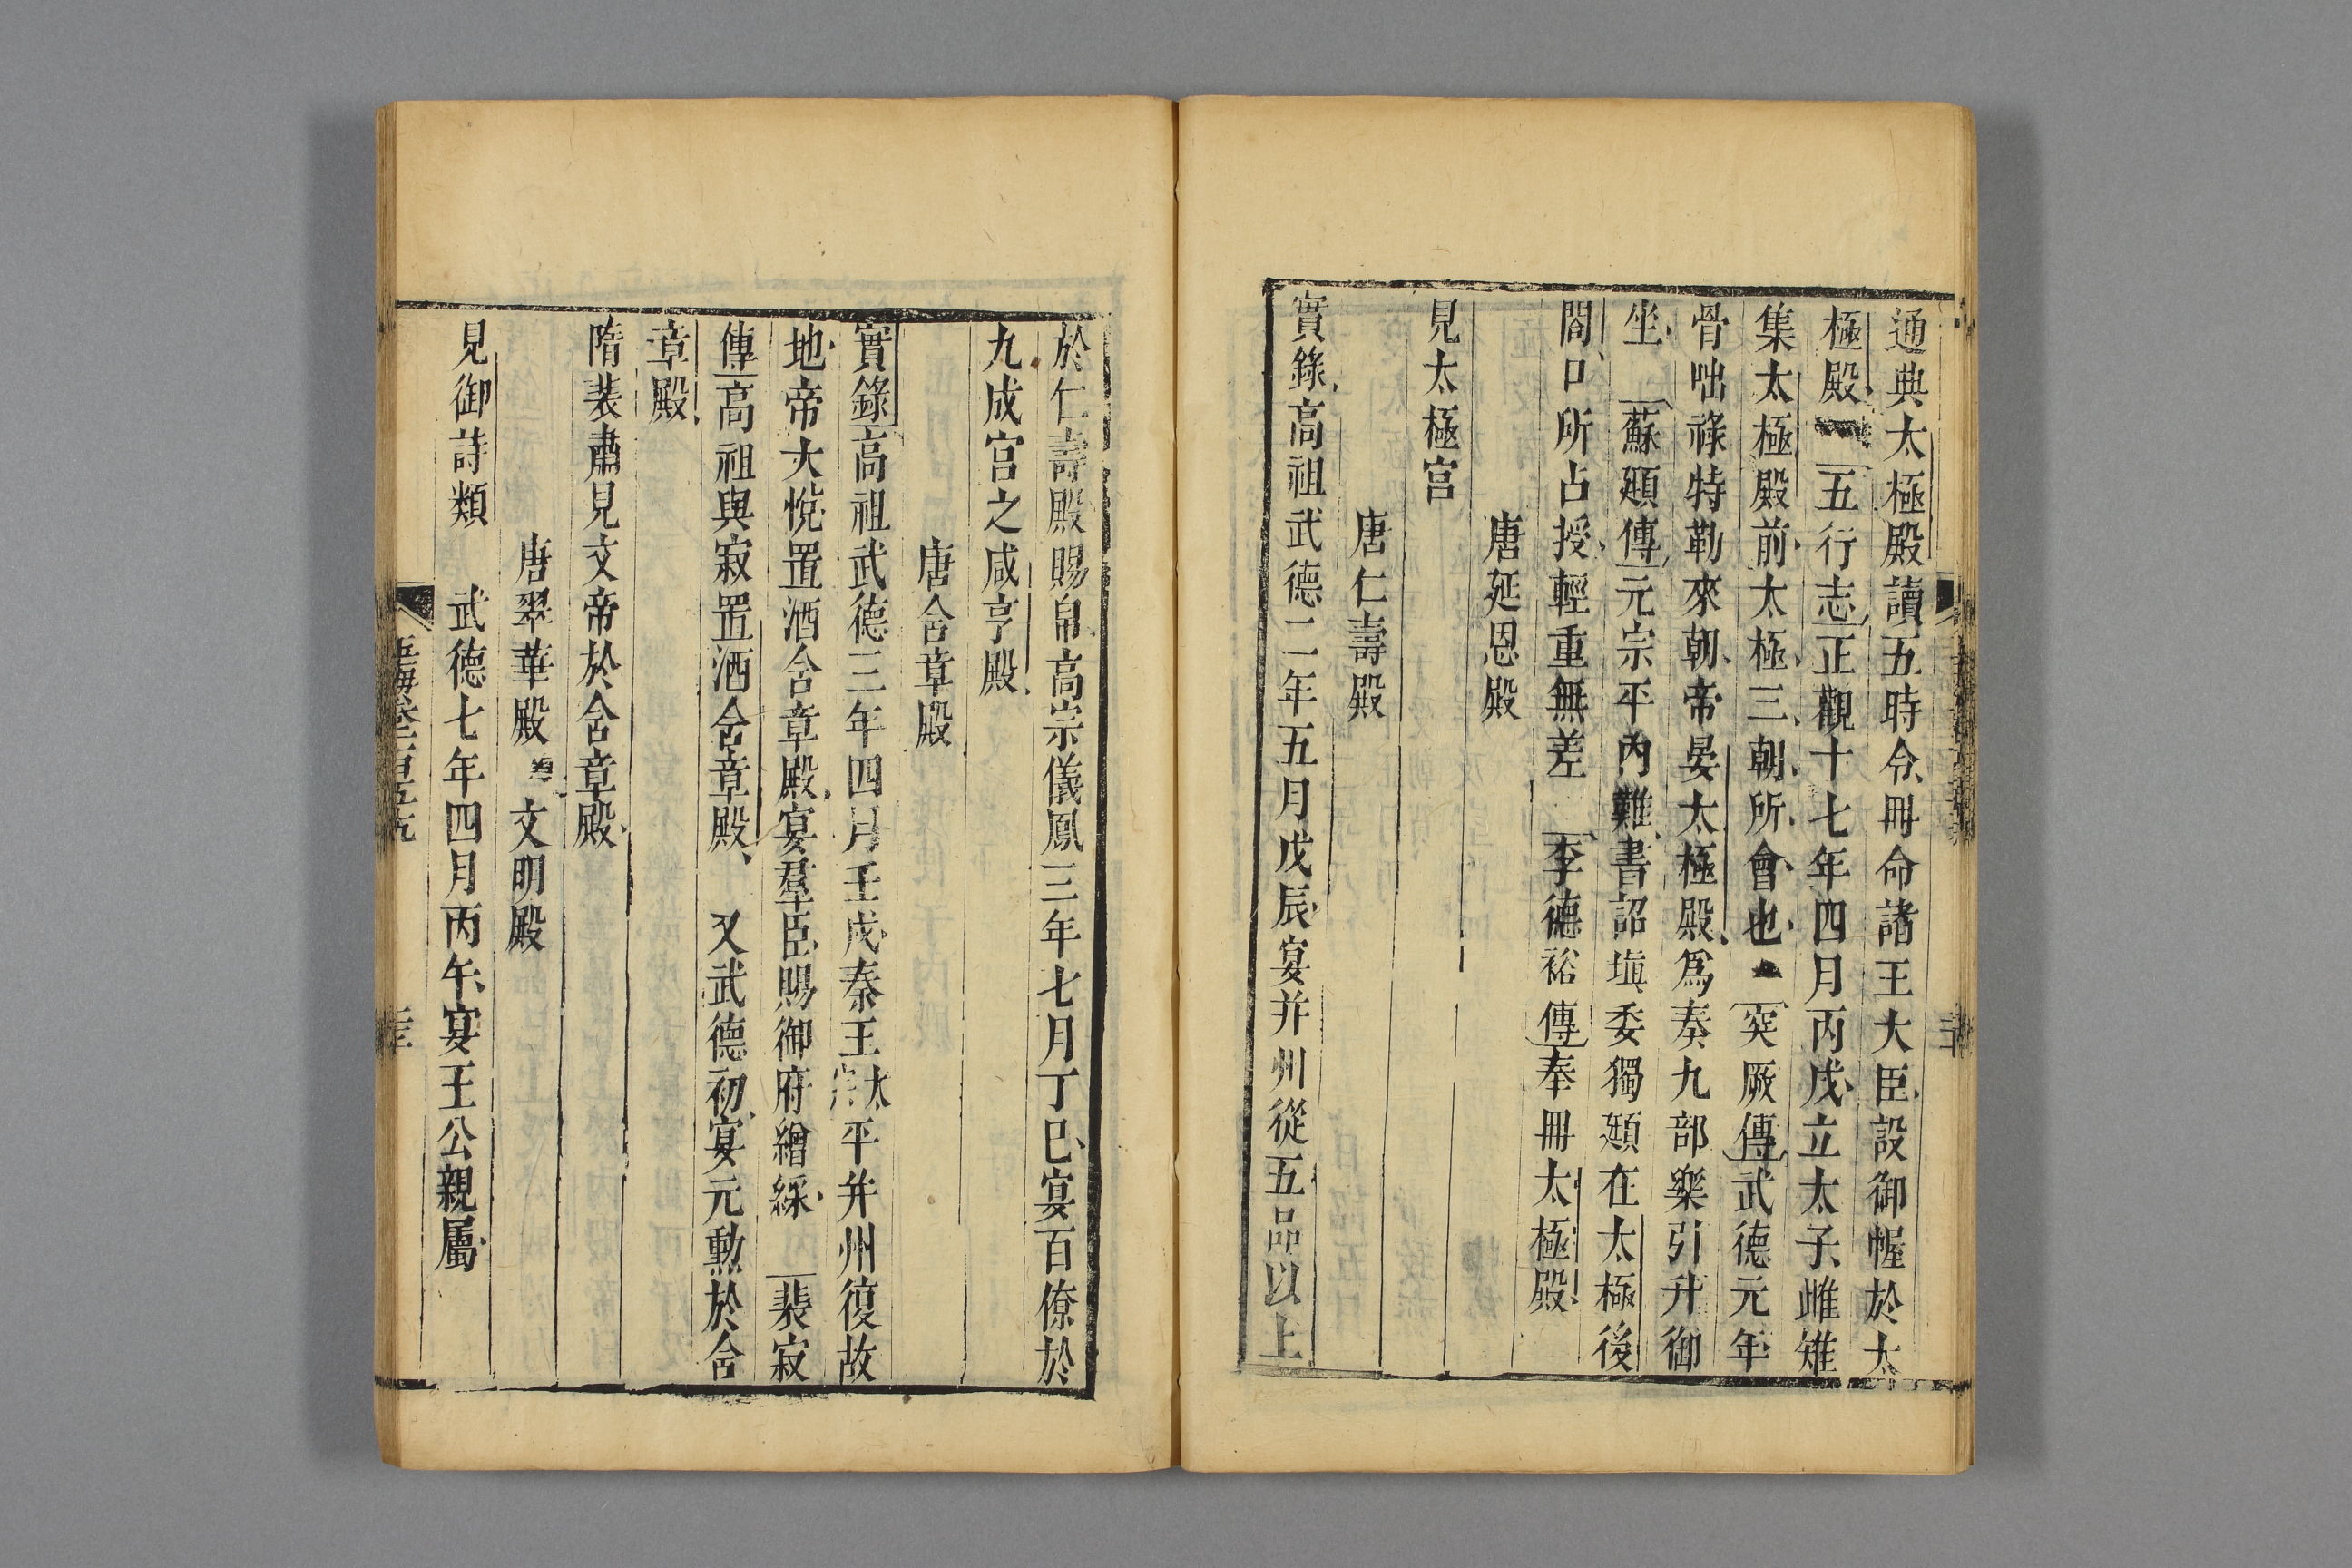 通典太極殿讀五時令冊命諸王大臣設御幄於太
極殿 五行志正觀十七年四月丙戌立太子雌雉
集太極殿前太極三朝所會也 突厥傳武德元年
骨咄祿特勒來朝帝晏太極殿爲奏九部樂引升御
坐 蘇頲傳元宗平內難書詔塡委獨頲在太極後
閤口所占授輕重無差 李德裕傳奉冊太極殿
唐延恩殿
見太極宮
唐仁壽殿
實錄高祖武德二年五月戊辰宴并州從五品以上
於仁壽殿賜帛高宗儀鳳三年七月丁巳宴百僚於
九成宮之咸亨殿
唐含章殿
實錄高祖武德三年四月壬戌秦王太宗平并州復故
地帝大悅置酒含章殿宴羣臣賜御府繒綵 裴寂
傳高祖與寂置酒含章殿 又武德初宴元勳於含
章殿
隋裴肅見文帝於含章殿
唐翠華殿 文明殿
見御詩類 武德七年四月丙午宴王公親屬
玉海卷一百五十九